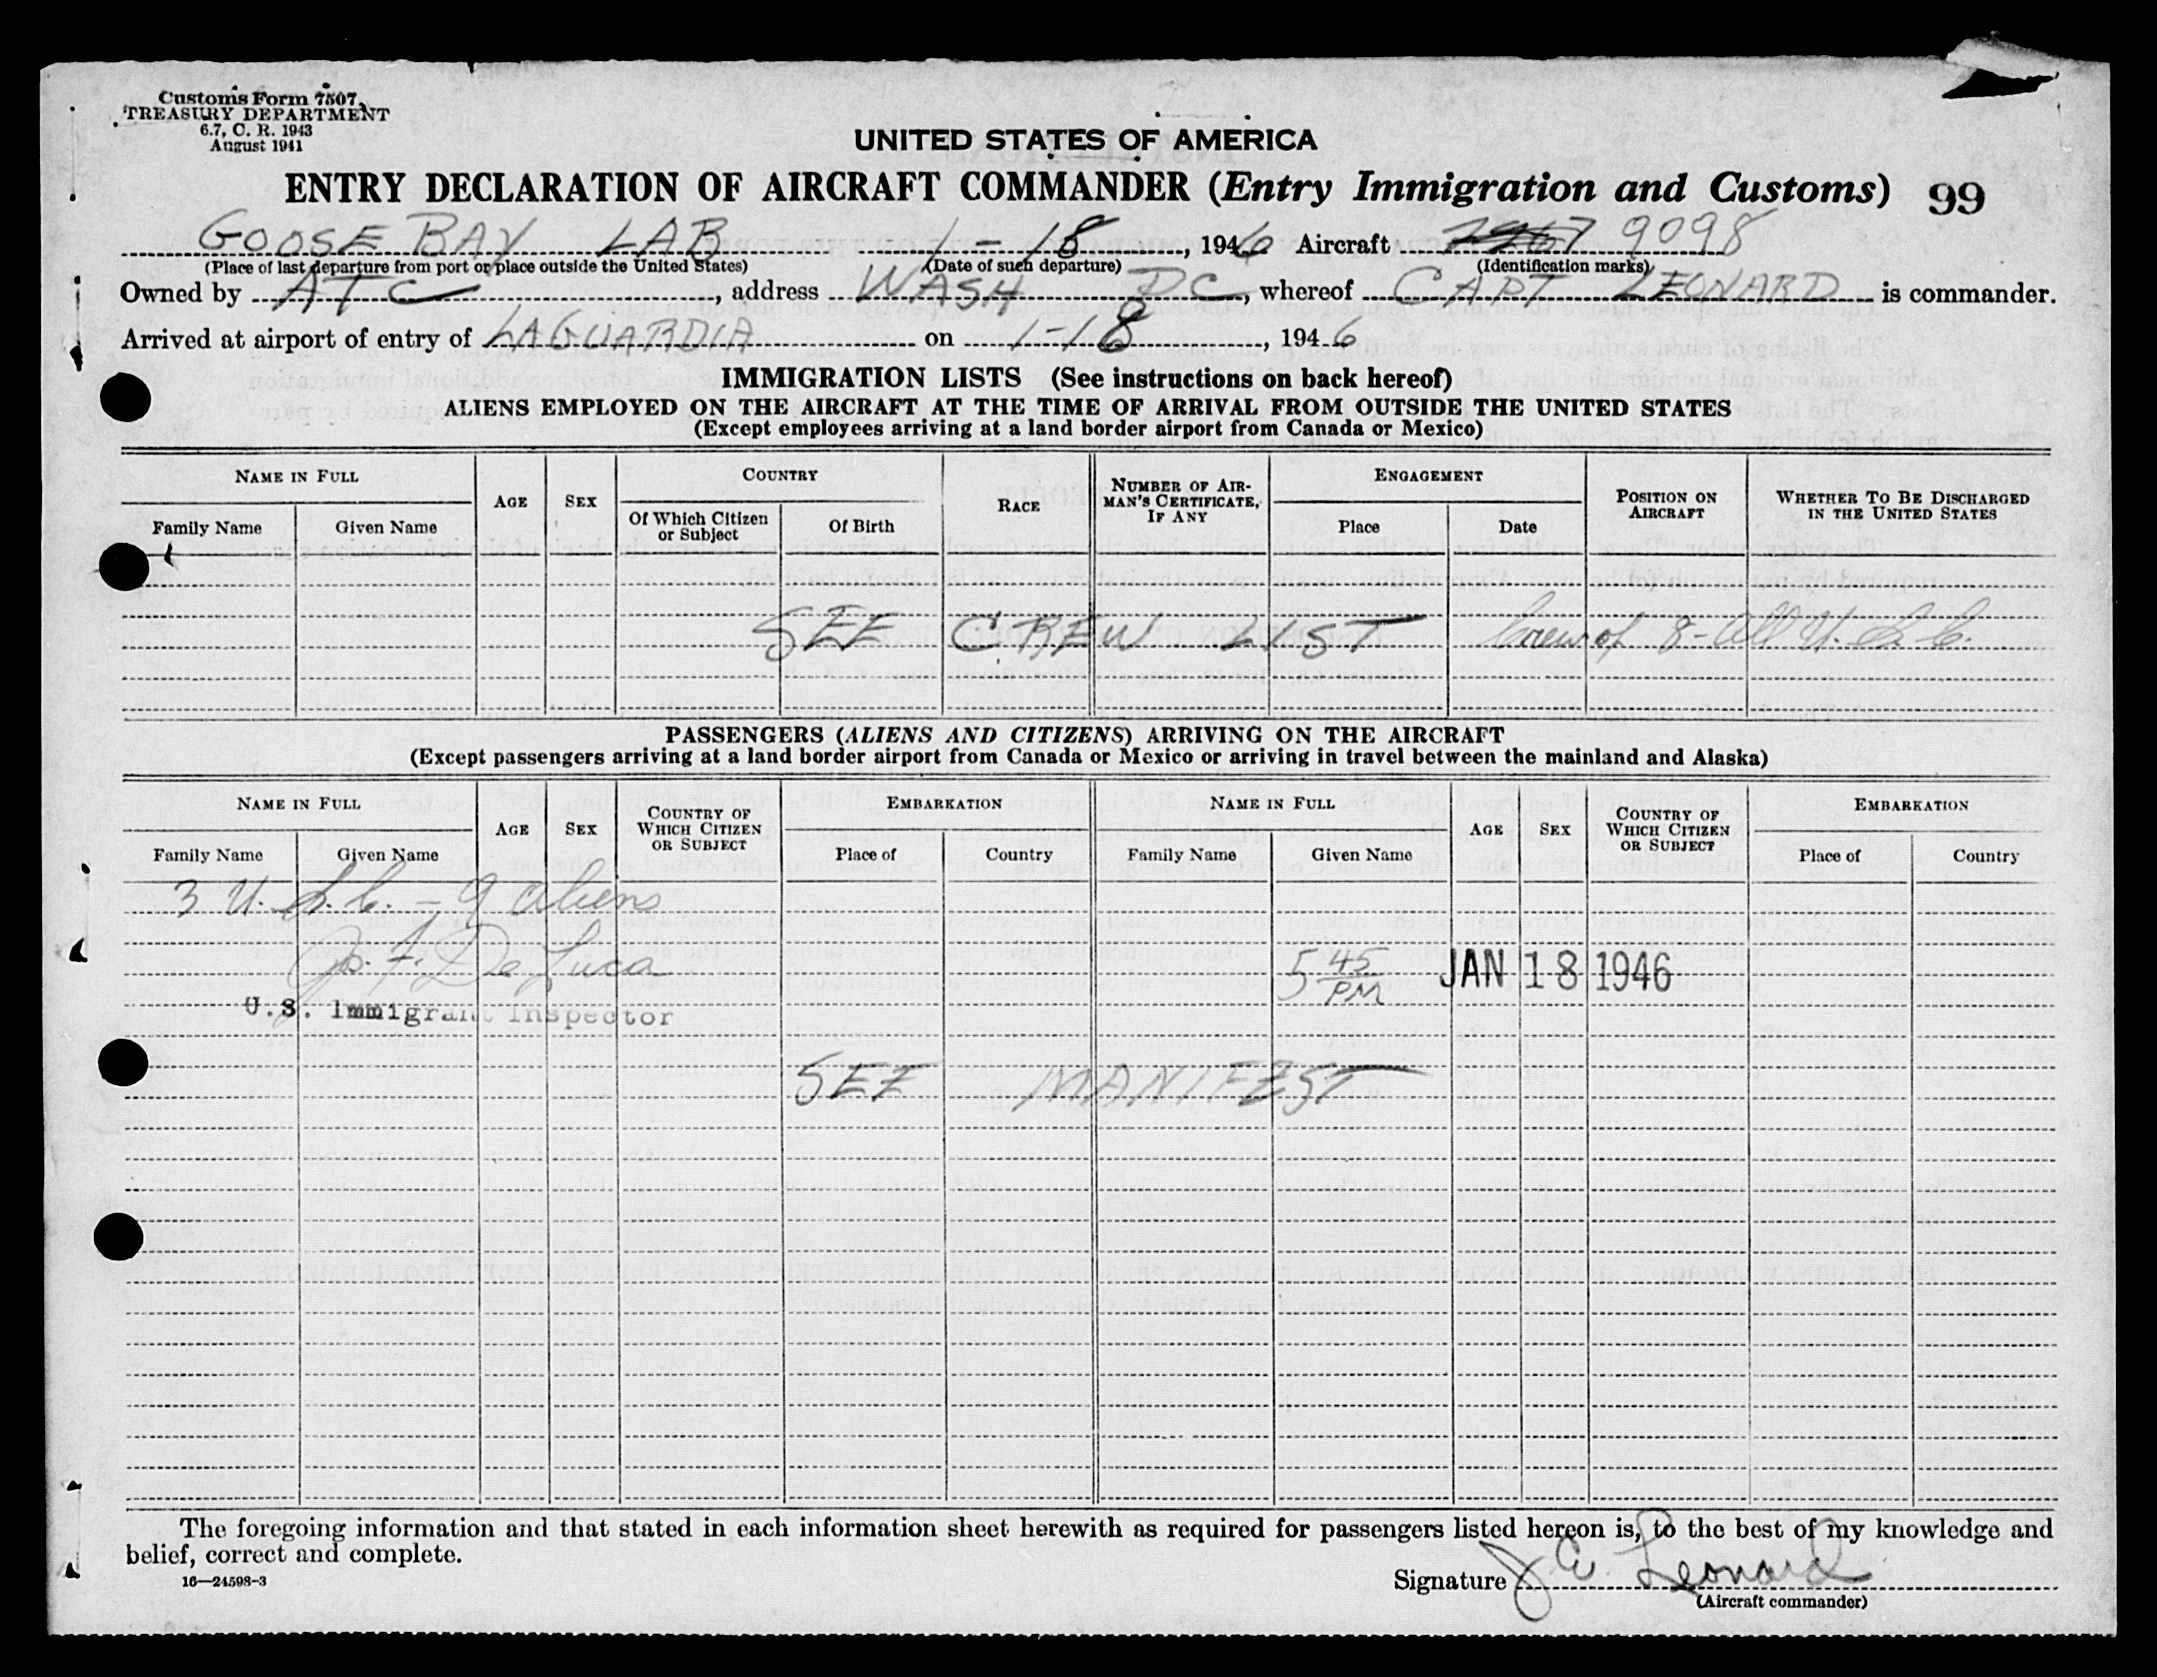 Customs Form 7507
TREASURY DEPARTMENT
6.7, C. R. 1943
August 1941
UNITED STATES OF AMERICA
ENTRY DECLARATION OF AIRCRAFT COMMANDER (Entry Immigration and Customs) 99
GOOSE BAY LAB 1-18, 1946 Aircraft 9098
(Place of last departure from port or place outside the United States) (Date of such departure) (Identification marks)
Owned by ATC, address WASH DC, whereof CAPT LEONARD is commander.
Arrived at airport of entry of LAGUARDIA on 1-18, 1946
IMMIGRATION LISTS (See instructions on back hereof)
ALIENS EMPLOYED ON THE AIRCRAFT AT THE TIME OF ARRIVAL FROM OUTSIDE THE UNITED STATES
(Except employees arriving at a land border airport from Canada or Mexico)
NAME IN FULL AGE SEX COUNTRY RACE NUMBER OF AIRMAN'S CERTIFICATE, IF ANY ENGAGEMENT POSITION ON AIRCRAFT WHETHER TO BE DISCHARGED IN THE UNITED STATES
Family Name Given Name Of Which Citizen or Subject Of Birth Place Date
SEE CREW LIST Crew of 8-All U.S.C.
PASSENGERS (ALIENS AND CITIZENS) ARRIVING ON THE AIRCRAFT
(Except passengers arriving at a land border airport from Canada or Mexico or arriving in travel between the mainland and Alaska)
NAME IN FULL AGE SEX COUNTRY OF WHICH CITIZEN OR SUBJECT EMBARKATION NAME IN FULL AGE SEX COUNTRY OF WHICH CITIZEN OR SUBJECT EMBARKATION
Family Name Given Name Place of Country Family Name Given Name Place of Country
3 U.S.C. - 9 aliens
Jos. F. De Luca 5 45 PM JAN 18 1946
U.S. Immigrant Inspector
SEE MANIFEST
The foregoing information and that stated in each information sheet herewith as required for passengers listed hereon is, to the best of my knowledge and
belief, correct and complete.
16—24598-3
Signature J E Leonard
(Aircraft commander)